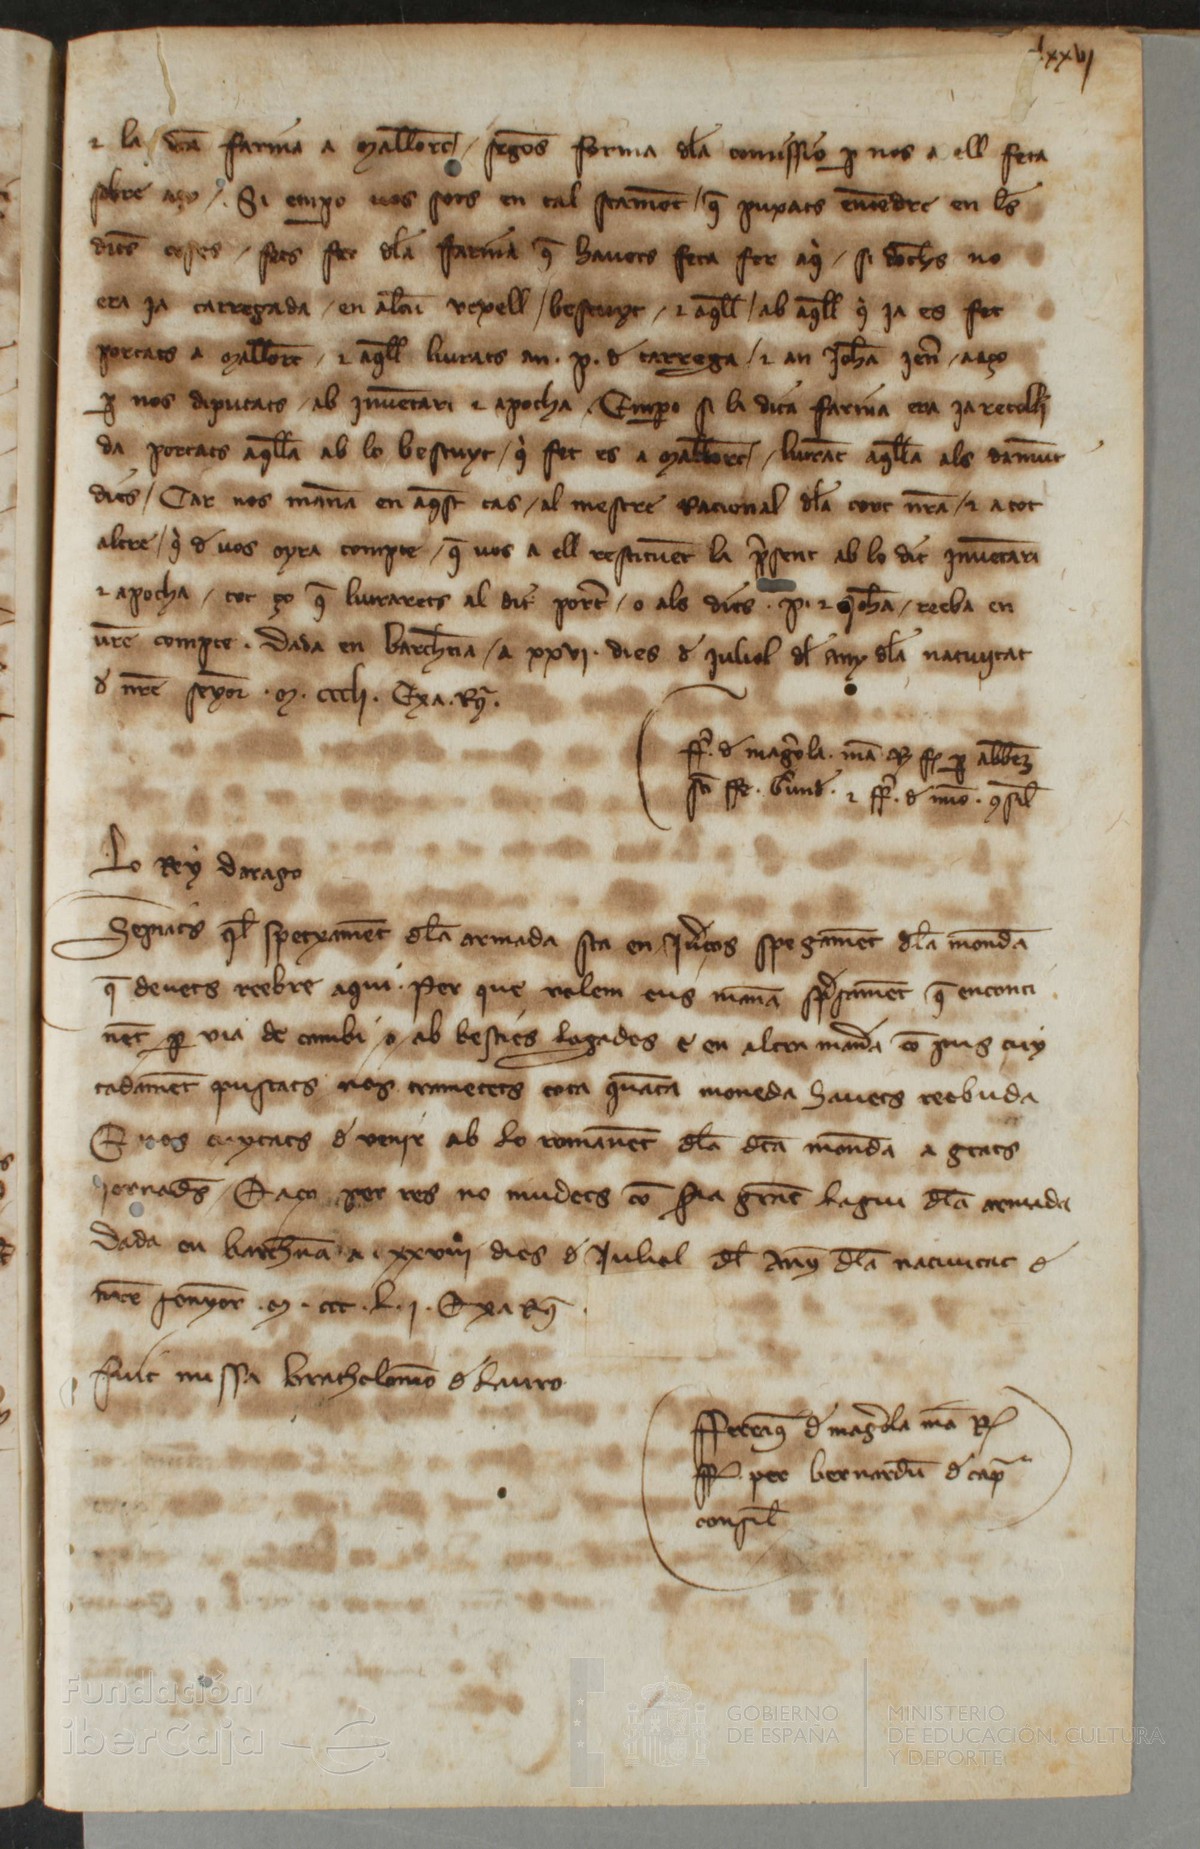 lxxvi
⁊ la dca farina a Mallorc / segons forma dla comissio p nos a ell feta
sobre aço / Si empo vos sots en tal stament / q puxats entendre en les
dites coses / fets fer dla farina q havets feta fer aqi / si donchs no
era ja carregada / en alcun vexell / bescuyt / ⁊ aqll / ab aqll qi ja es fet
portats a Mallorc / ⁊ aqll liurats an . P . d carrega / ⁊ an Joha / aaço
p nos diputats / ab inventari ⁊ apocha . Empo si la dita farina era ja recolli
da portats aqlla ab lo bescuyt / qi fet es a Mallorc / liurat aqlla als damunt
dits / Car nos manam en aqst cas / al mestre Racional dla cort nra / ⁊ a tot
altre / qi d vos oyra compte / q vos a ell restituent la present ab lo dit inventari
⁊ apocha / tot ço q liurarets al dit port / o als dits . P . ⁊ Joha / reeba en
vre compte . Dada en barchna / a xxvi . dies d juliol dl any dla nativitat
d nre senyor . M . cccli . Exa . Rq .
ffr . d magola . ma p abbem
ffe . Gund . ⁊ ffr . d . consil
Lo Rey darago
Sepiats ql spetxament dla armada sta en spegament dla moneda
q devets reebre aqui . Per que volem eus manam q enconti
nent p via de cambi / o / ab besties logades e en altra manera com pus cuy
tadament puscats nos trametets tota quanta moneda havets reebuda
E vos cuytats d venir ab lo romanent dla dca moneda a grans
jornades / E aço per res no mudets com sia grant lagui dla armada
Dada en barchna a . xxviii dies d Juliol dl any dla nativitat d
nre senyor . M . ccc . L . j . Exa Rq
Fuit missa bartholomeo d lauro
fferrarius d magola ma R
per bernardum d capr
consil
Fundación
iberCaja
GOBIERNO
DE ESPAÑA
MINISTERIO
DE EDUCACIÓN, CULTURA
Y DEPORTE